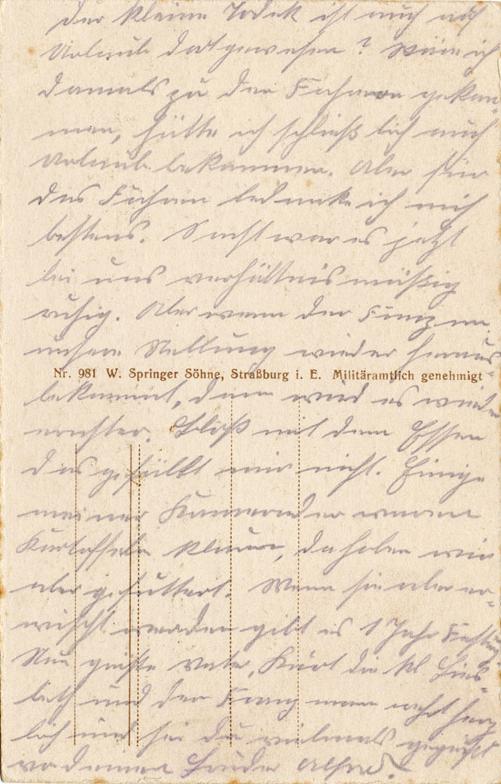 Der kleine Todek ist auch auf
Urlaub dagewesen? Wäre ich
damals zu den Fahrern gekom-
men, hätte ich schließlich auch
Urlaub bekommen. Aber für
das Fahren bedanke ich mich
bestens. Sonst war es jetzt
bei uns verhältnismäßig
ruhig. Aber wenn der Franzmann
unsere Stellung wieder heraus
bekommt, dann wird es wieder
ernster. Bloß mit dem Essen
das gefällt mir nicht. Einige
meiner Kameraden waren
Kartoffeln klauen, da haben wir
aber gefuttert. Wenn sie aber er-
wischt werden gibt es 1 Jahr Festung
Nun grüße Vater, Kurt die kl
und den Franz man recht herz
lich und sei du vielmals gegrüßt
von deinem Bruder Alfred.
Nr. 981 W. Springer Söhne, Straßburg i. E. Militäramtlich genehmigt